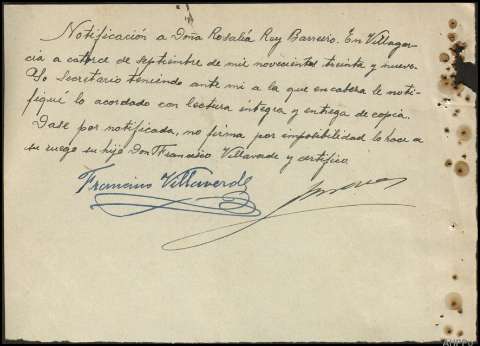 Notificación a Doña Rosalía Rey Barreiro. En Villagar-
cia a catorce de septiembre de mil novecientos treinta y nueve.
Yo Secretario teniendo ante mi a la que encabeza le noti-
fiqué lo acordado con lectura integra y entrega de copia.
Dase por notificada, no firma por imposibilidad lo hace a
su ruego su hijo Don Francisco Villaverde y certifico
Francisco Villaverde